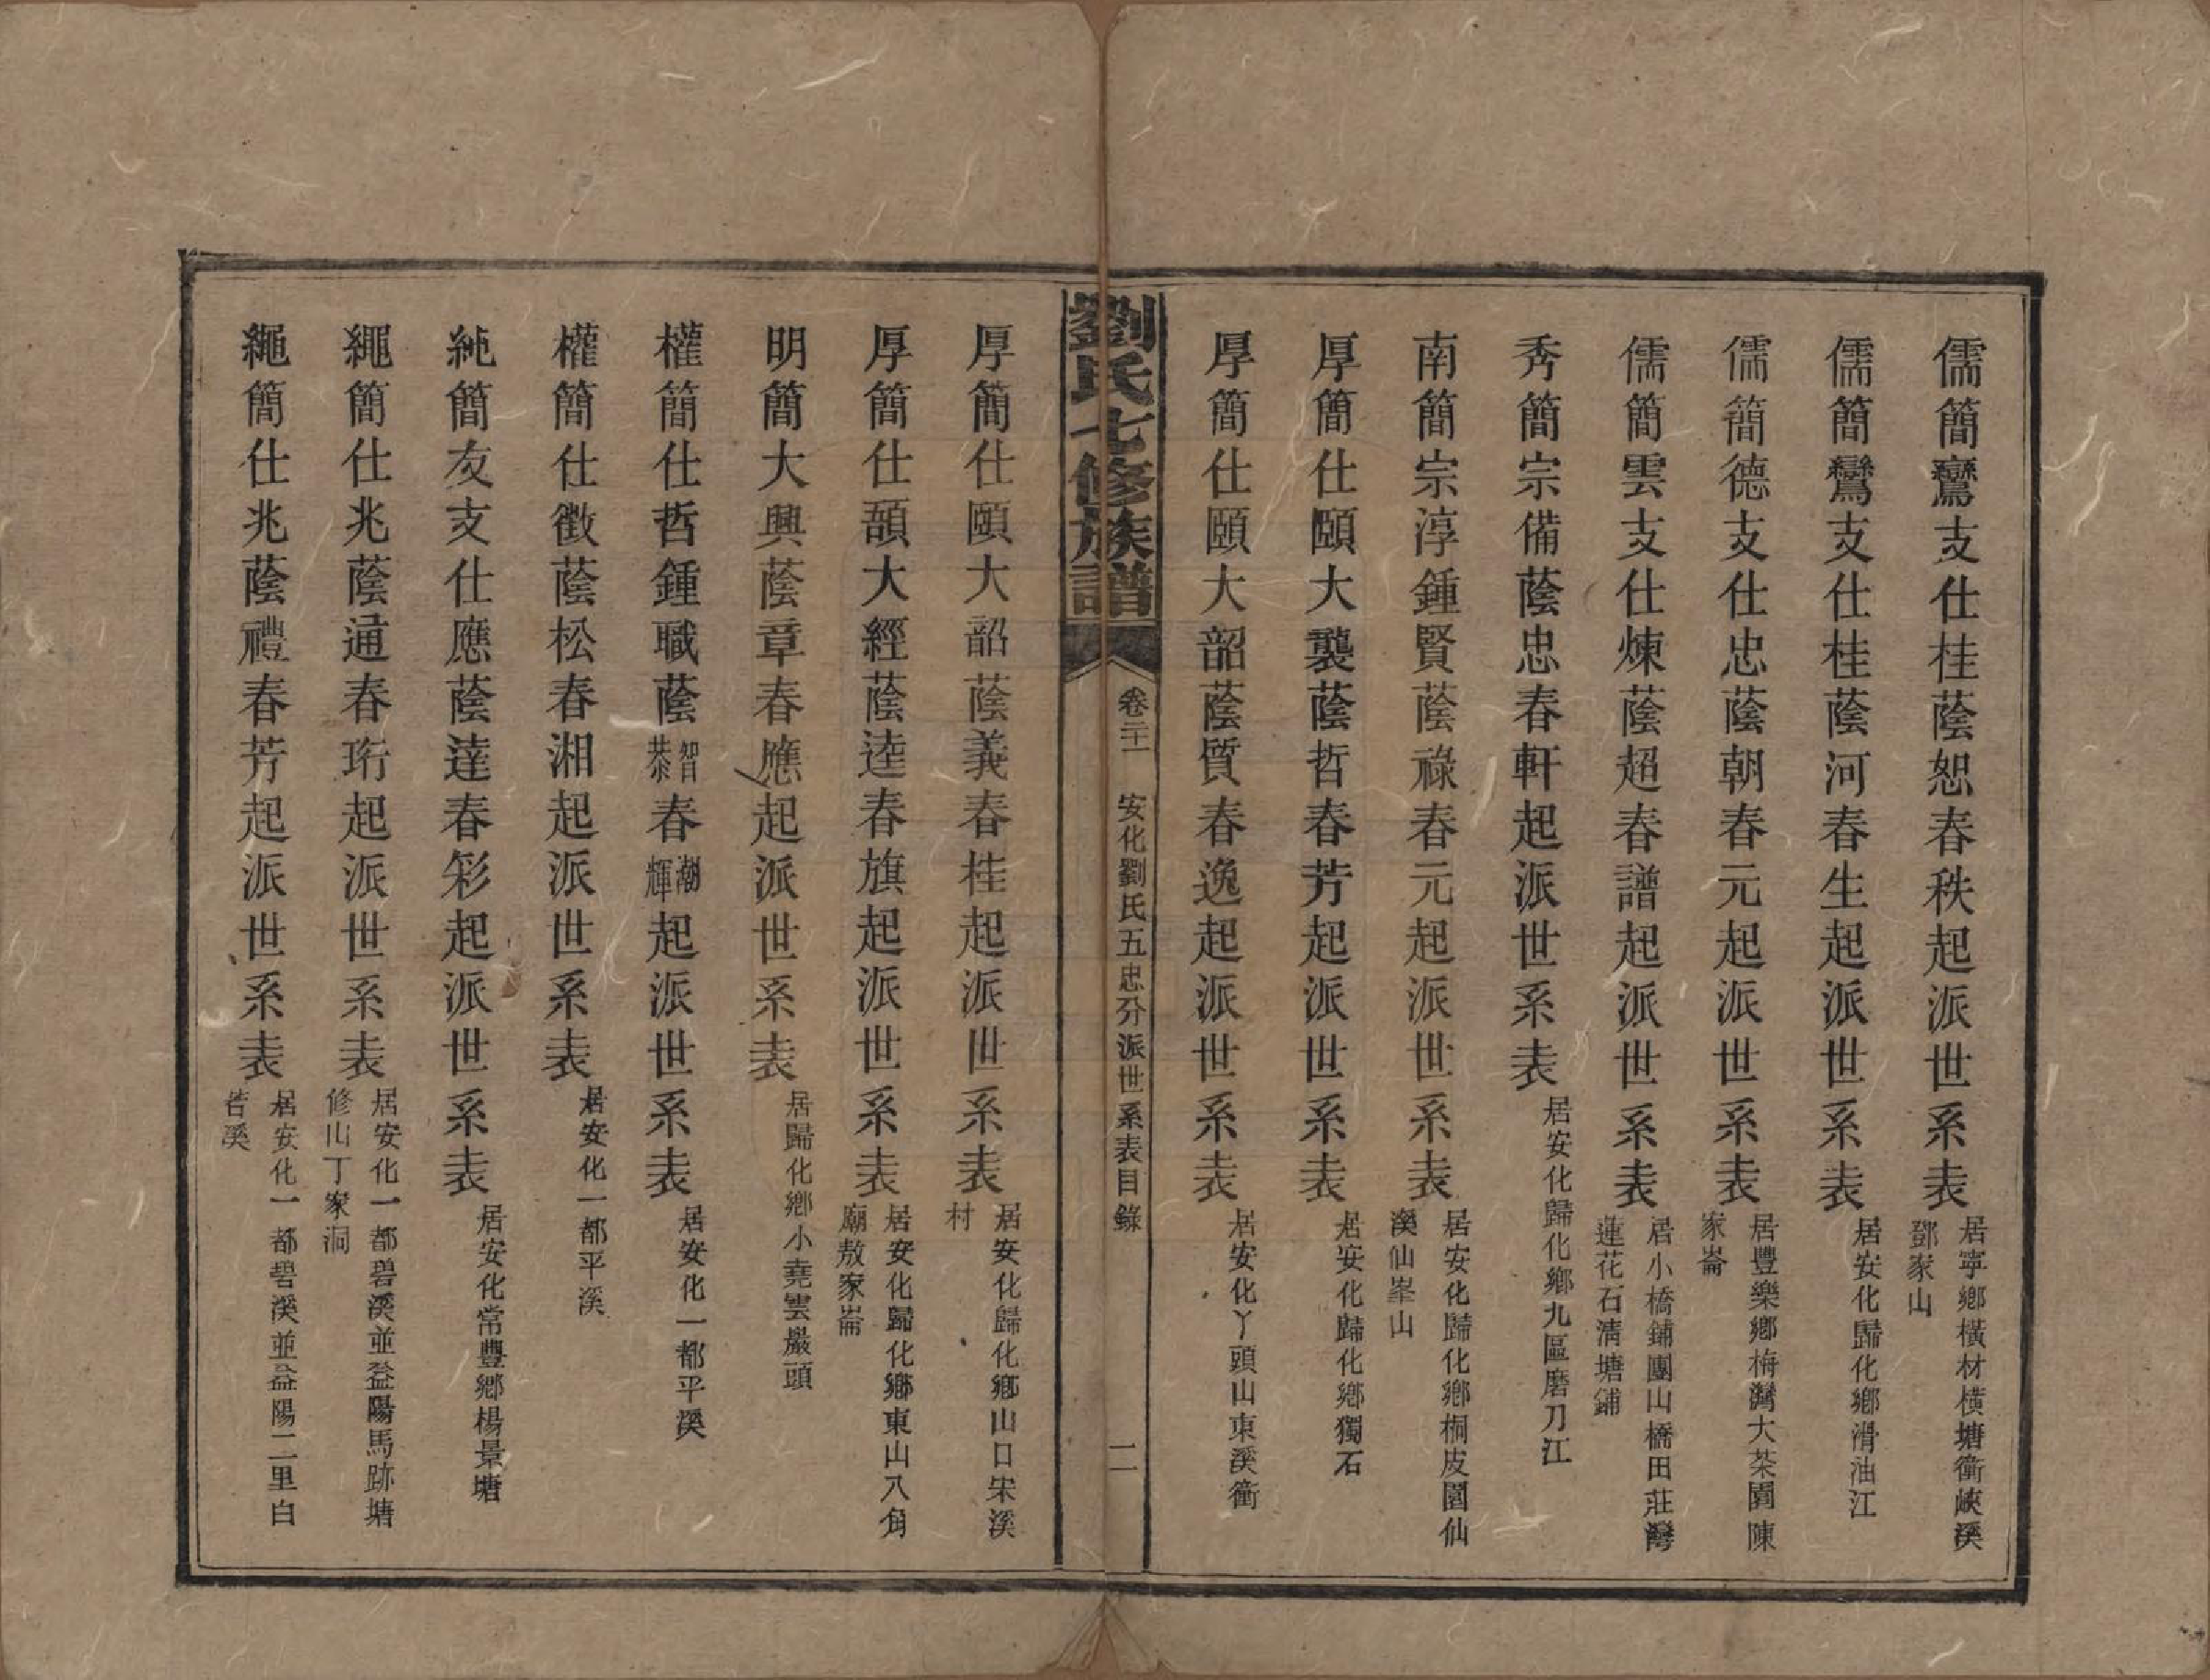 儒簡鸞支仕桂蔭恕春秩起派世系表 居寧鄉橫材橫塘衝峽溪鄧家山
儒簡鸞支仕桂蔭河春生起派世系表 居安化歸化鄉滑油江
儒簡德支仕忠蔭朝春元起派世系表 居豐樂鄉栴灣大茶園陳家崙
儒簡雲支仕煉蔭超春譜起派世系表 居小橋鋪團山橋田莊灣蓮花石清塘鋪
秀簡宗備蔭忠春軒起派世系表 居安化歸化鄉九區磨刀江
南簡宗淳鍾賢蔭祿春元起派世系表 居安化歸化鄉桐皮園仙溪仙峯山
厚簡仕頤大襲蔭哲春芳起派世系表 居安化歸化鄉獨石
厚簡仕頤大韶蔭質春逸起派世系表 居安化丫頭山東溪衝
劉氏七修族譜 卷二十一 安化劉氏五忠分派世系表目錄 二
厚簡仕頤大韶蔭義春桂起派世系表 居安化歸化鄉山口宋溪村
厚簡仕頤大經蔭逵春旗起派世系表 居安化歸化鄉東山八角廟敖家崙
明簡大興蔭章春應起派世系表 居歸化鄉小堯雲巖頭
權簡仕哲鍾職蔭智恭春潮輝起派世系表 居安化一都平溪
權簡仕徵蔭松春湘起派世系表 居安化一都平溪
純簡友支仕應蔭達春彩起派世系表 居安化常豐鄉楊景塘
繩簡仕兆蔭通春珩起派世系表 居安化一都碧溪並益陽馬跡塘修山丁家洞
繩簡仕兆蔭禮春芳起派世系表 居安化一都碧溪並益陽二里白若溪